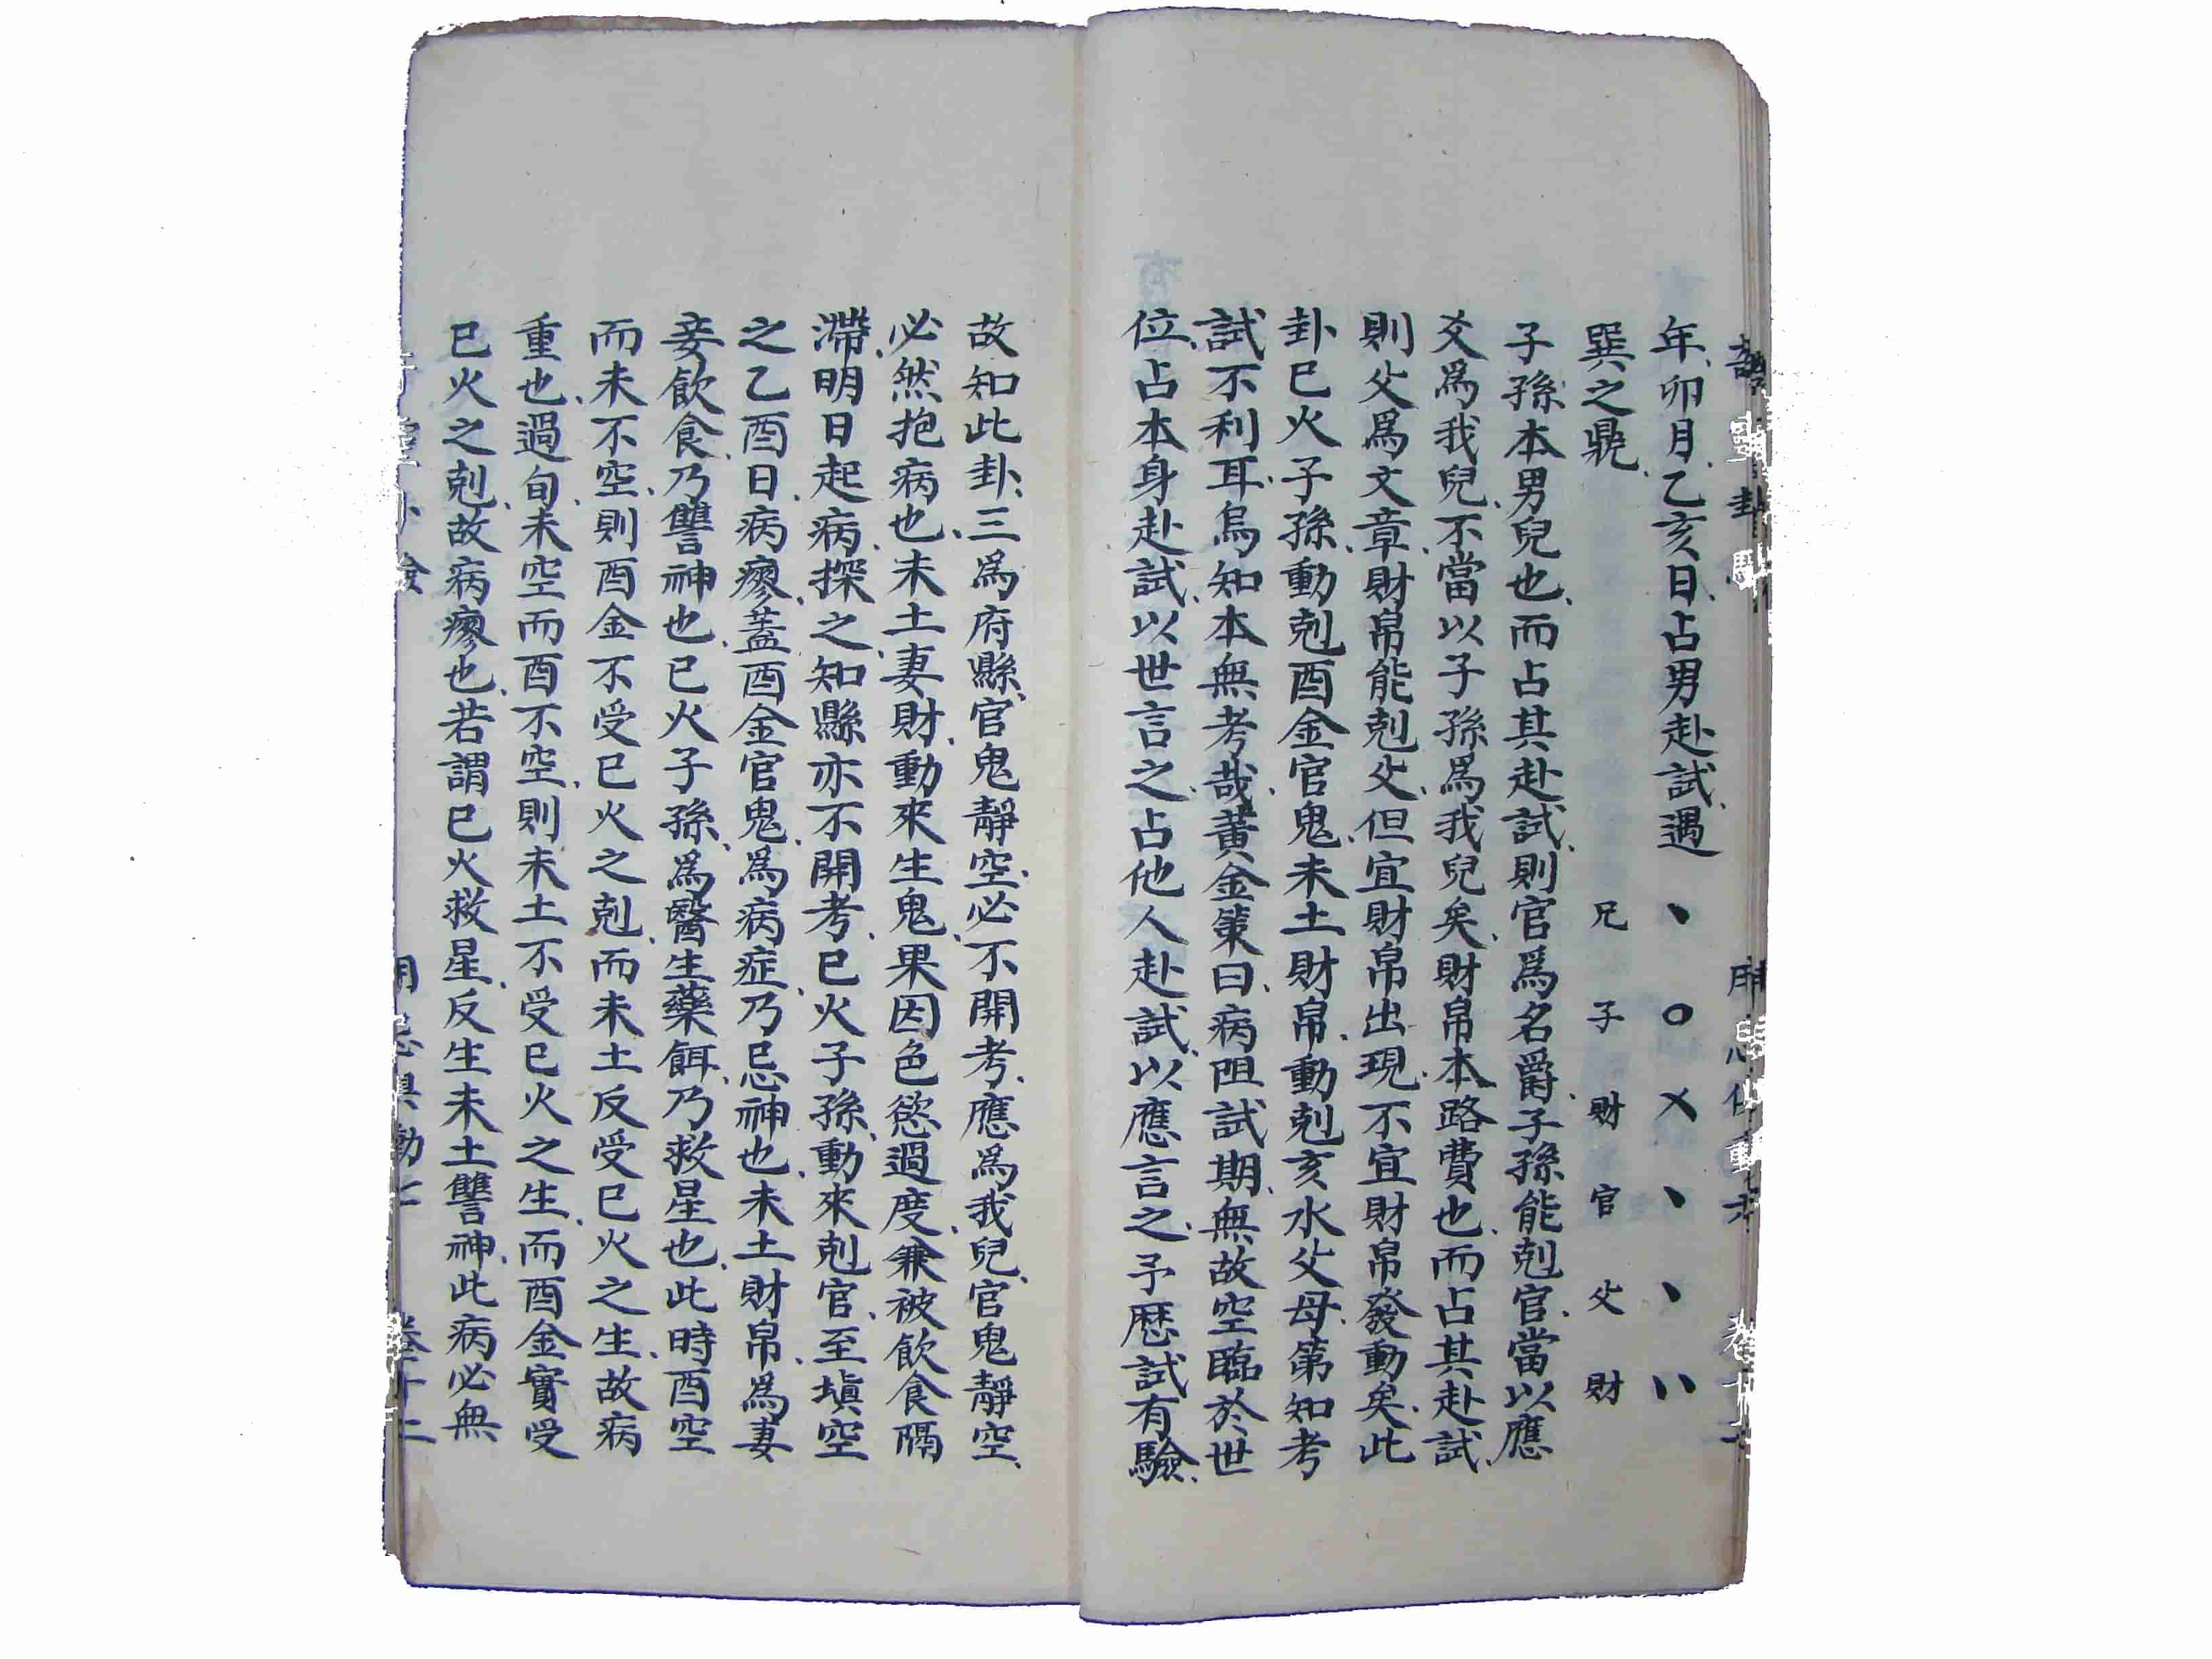 年、卯月、乙亥日、占男赴試、遇
巽之鼎、
兄 子 財 官 父 財
子孫本男兒也、而占其赴試、則官爲名爵、子孫能剋官、當以應
爻爲我兒、不當以子孫爲我兒矣、財帛本路費也、而占其赴試、
則父爲文章、財帛能剋父、但宜財帛出現、不宜財帛發動矣、此
卦巳火子孫、動剋酉金官鬼、未土財帛、動剋亥水父母、第知考
試不利耳、烏知本無考哉、黃金策曰、病阻試期、無故空臨於世
位、占本身赴試、以世言之、占他人赴試、以應言之、予歷試有驗、
故知此卦、三爲府縣、官鬼靜空、必不開考、應爲我兒、官鬼靜空、
必然抱病也、未土妻財、動來生鬼、果因色慾過度、兼被飲食隔
滯、明日起病、探之、知縣亦不開考、巳火子孫、動來剋官、至塡空
之乙酉日、病瘳、蓋酉金官鬼、爲病症、乃忌神也、未土財帛、爲妻
妾飲食、乃讐神也、巳火子孫、爲醫生藥餌、乃救星也、此時酉空
而未不空、則酉金不受巳火之剋、而未土反受巳火之生、故病
重也、過旬、未空而酉不空、則未土不受巳火之生、而酉金實受
巳火之剋、故病瘳也、若謂巳火救星、反生未土讐神、此病必無